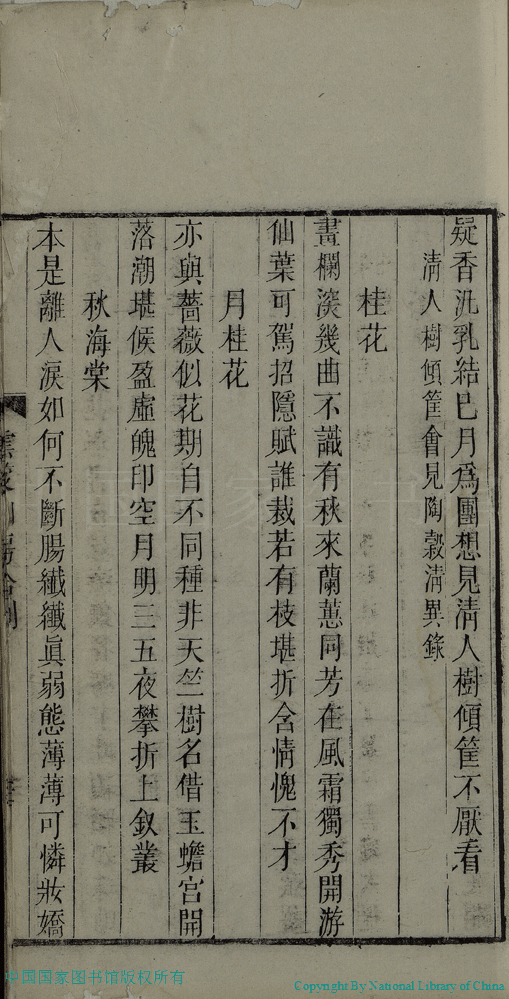 疑香沉乳結巳月爲團想見淸人樹傾筐不厭看
淸人樹傾筐會見陶穀淸異錄
桂花
畫欄深幾曲不識有秋來蘭蕙同芳在風霜獨秀開游
仙葉可駕招隱賦誰裁若有枝堪折含情愧不才
月桂花
亦與薔薇似花期自不同種非天竺樹名借玉蟾宮開
落潮堪候盈虛魄印空月明三五夜攀折上釵叢
秋海棠
本是離人淚如何不斷腸纖纖眞弱態薄薄可憐妝嬌
中国国家图书馆版权所有
Copyright By National Library of China